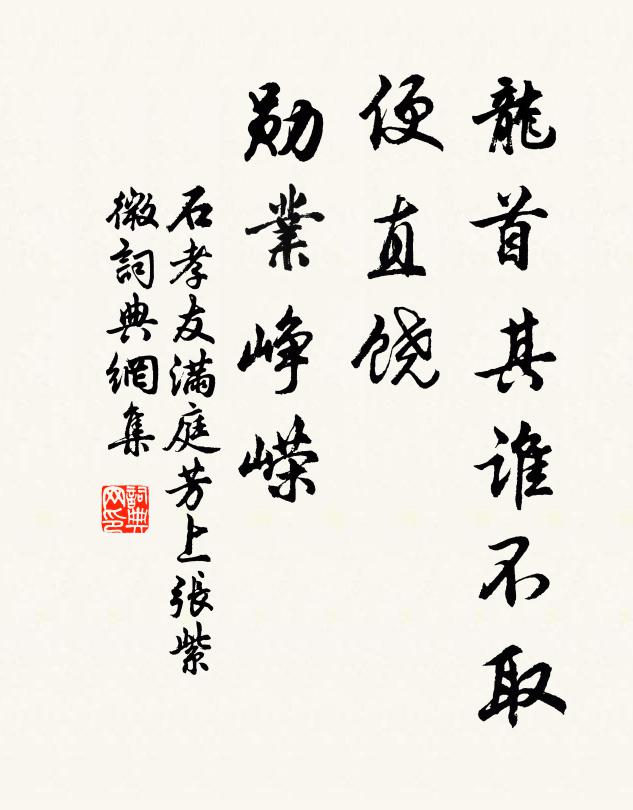 龍首其谁不取
便直饶
勋業峥嵘
石孝友满庭芳上張紫
微詞典網集
詞典
网印